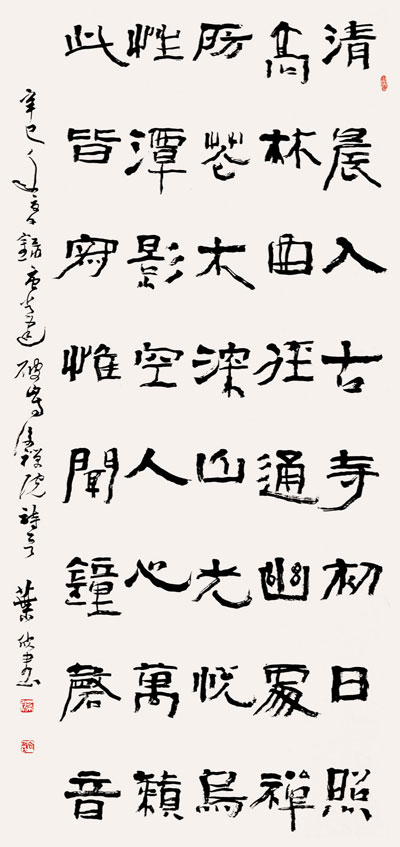 清晨入古寺初日照
高林曲徑通幽處禪
房花木深山光悅鳥
性潭影空人心萬籟
此皆寂惟聞鐘磬音
辛巳年錄唐常建破山寺後禪院詩 葉書